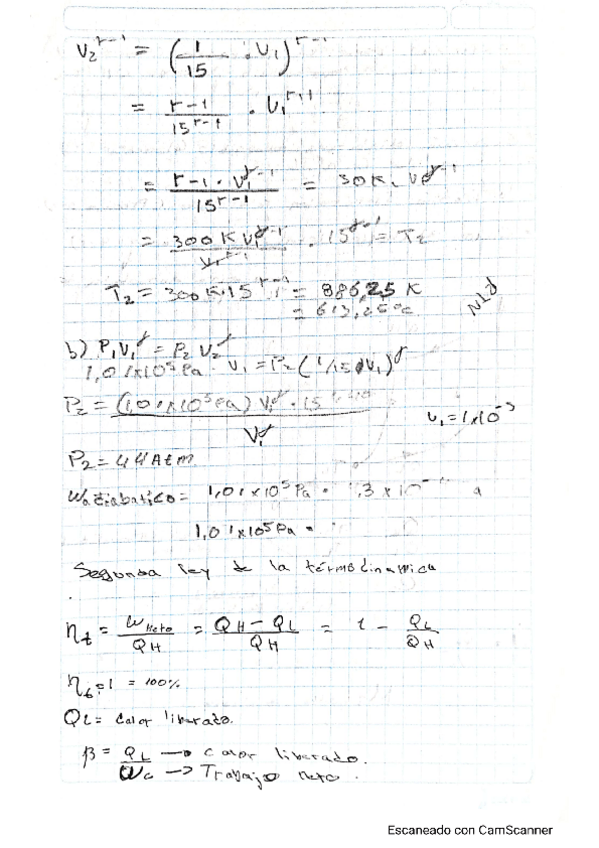 V₂^r-1 = (1/15 · V₁)^r-1
= r-1/15^r-1 · V₁^r+1
= r-1 · V₁^γ-1/15^r-1 = 30K · V₁^γ-1
= 300K V₁^γ-1/V₁^r-1 · 15^γ-1 = T₂
T₂ = 300K·15^r-1 = 886,25 K
= 613,25°C
b) P₁V₁^γ = P₂ V₂^γ
1,01x10⁵Pa · V₁ = P₂ (1/15 V₁)^γ
P₂ = (1,01x10⁵Pa) V₁^γ · 15/V₁^γ
V₁ = 1x10⁻³
P₂ = 44 Atm
Wadiabatico = 1,01x10⁵Pa · 3x10
1,01x10⁵Pa ·
Segunda ley de la térmodinamica
η_t = W Neto/Q_H = Q_H - Q_L/Q_H = 1 - Q_L/Q_H
η_t = 1 = 100%
Q_L = Calor liberado.
β = Q_L → calor liberado.
W_c → Trabajo neto.
Escaneado con CamScanner